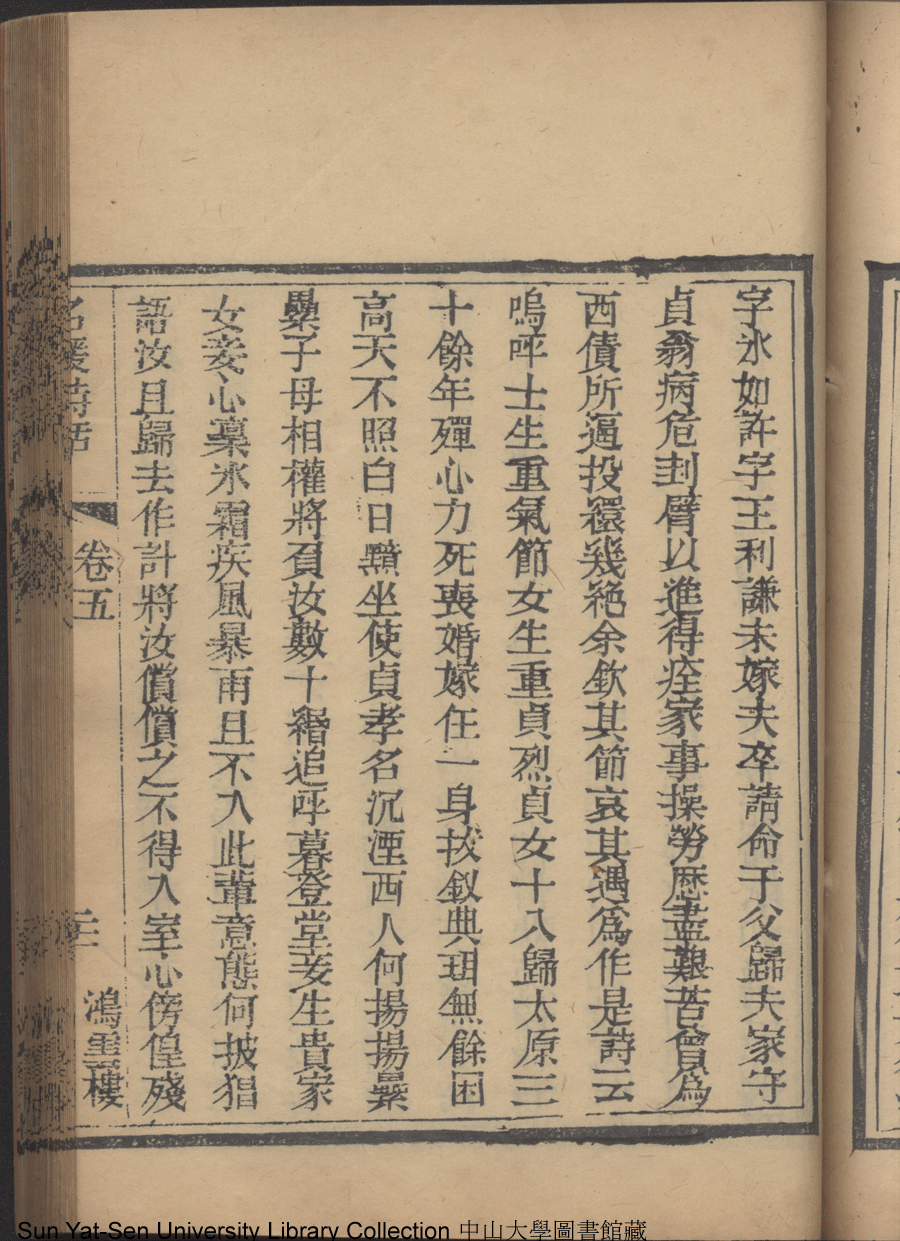 字冰如許字王利謙未嫁夫卒請命于父歸夫家守
貞翁病危刲臂以進得痊家事操勞歷盡艱苦曾為
西債所逼投繯幾絕余欽其節哀其遇為作是詩云
嗚呼士生重氣節女生重貞烈貞女十八歸太原三
十餘年殫心力死喪婚嫁任一身拔釵典珥無餘囷
高天不照白日黷坐使貞孝名沉湮西人何揚揚纍
纍子母相權將負汝數十緡追呼暮登堂妾生貴家
女妾心稟冰霜疾風暴雨且不入此輩意態何披猖
語汝且歸去作計將汝償償之不得入室心傍偟殘
名媛詩話
卷五
三
鴻雪樓
Sun Yat-Sen University Library Collection 中山大學圖書館藏